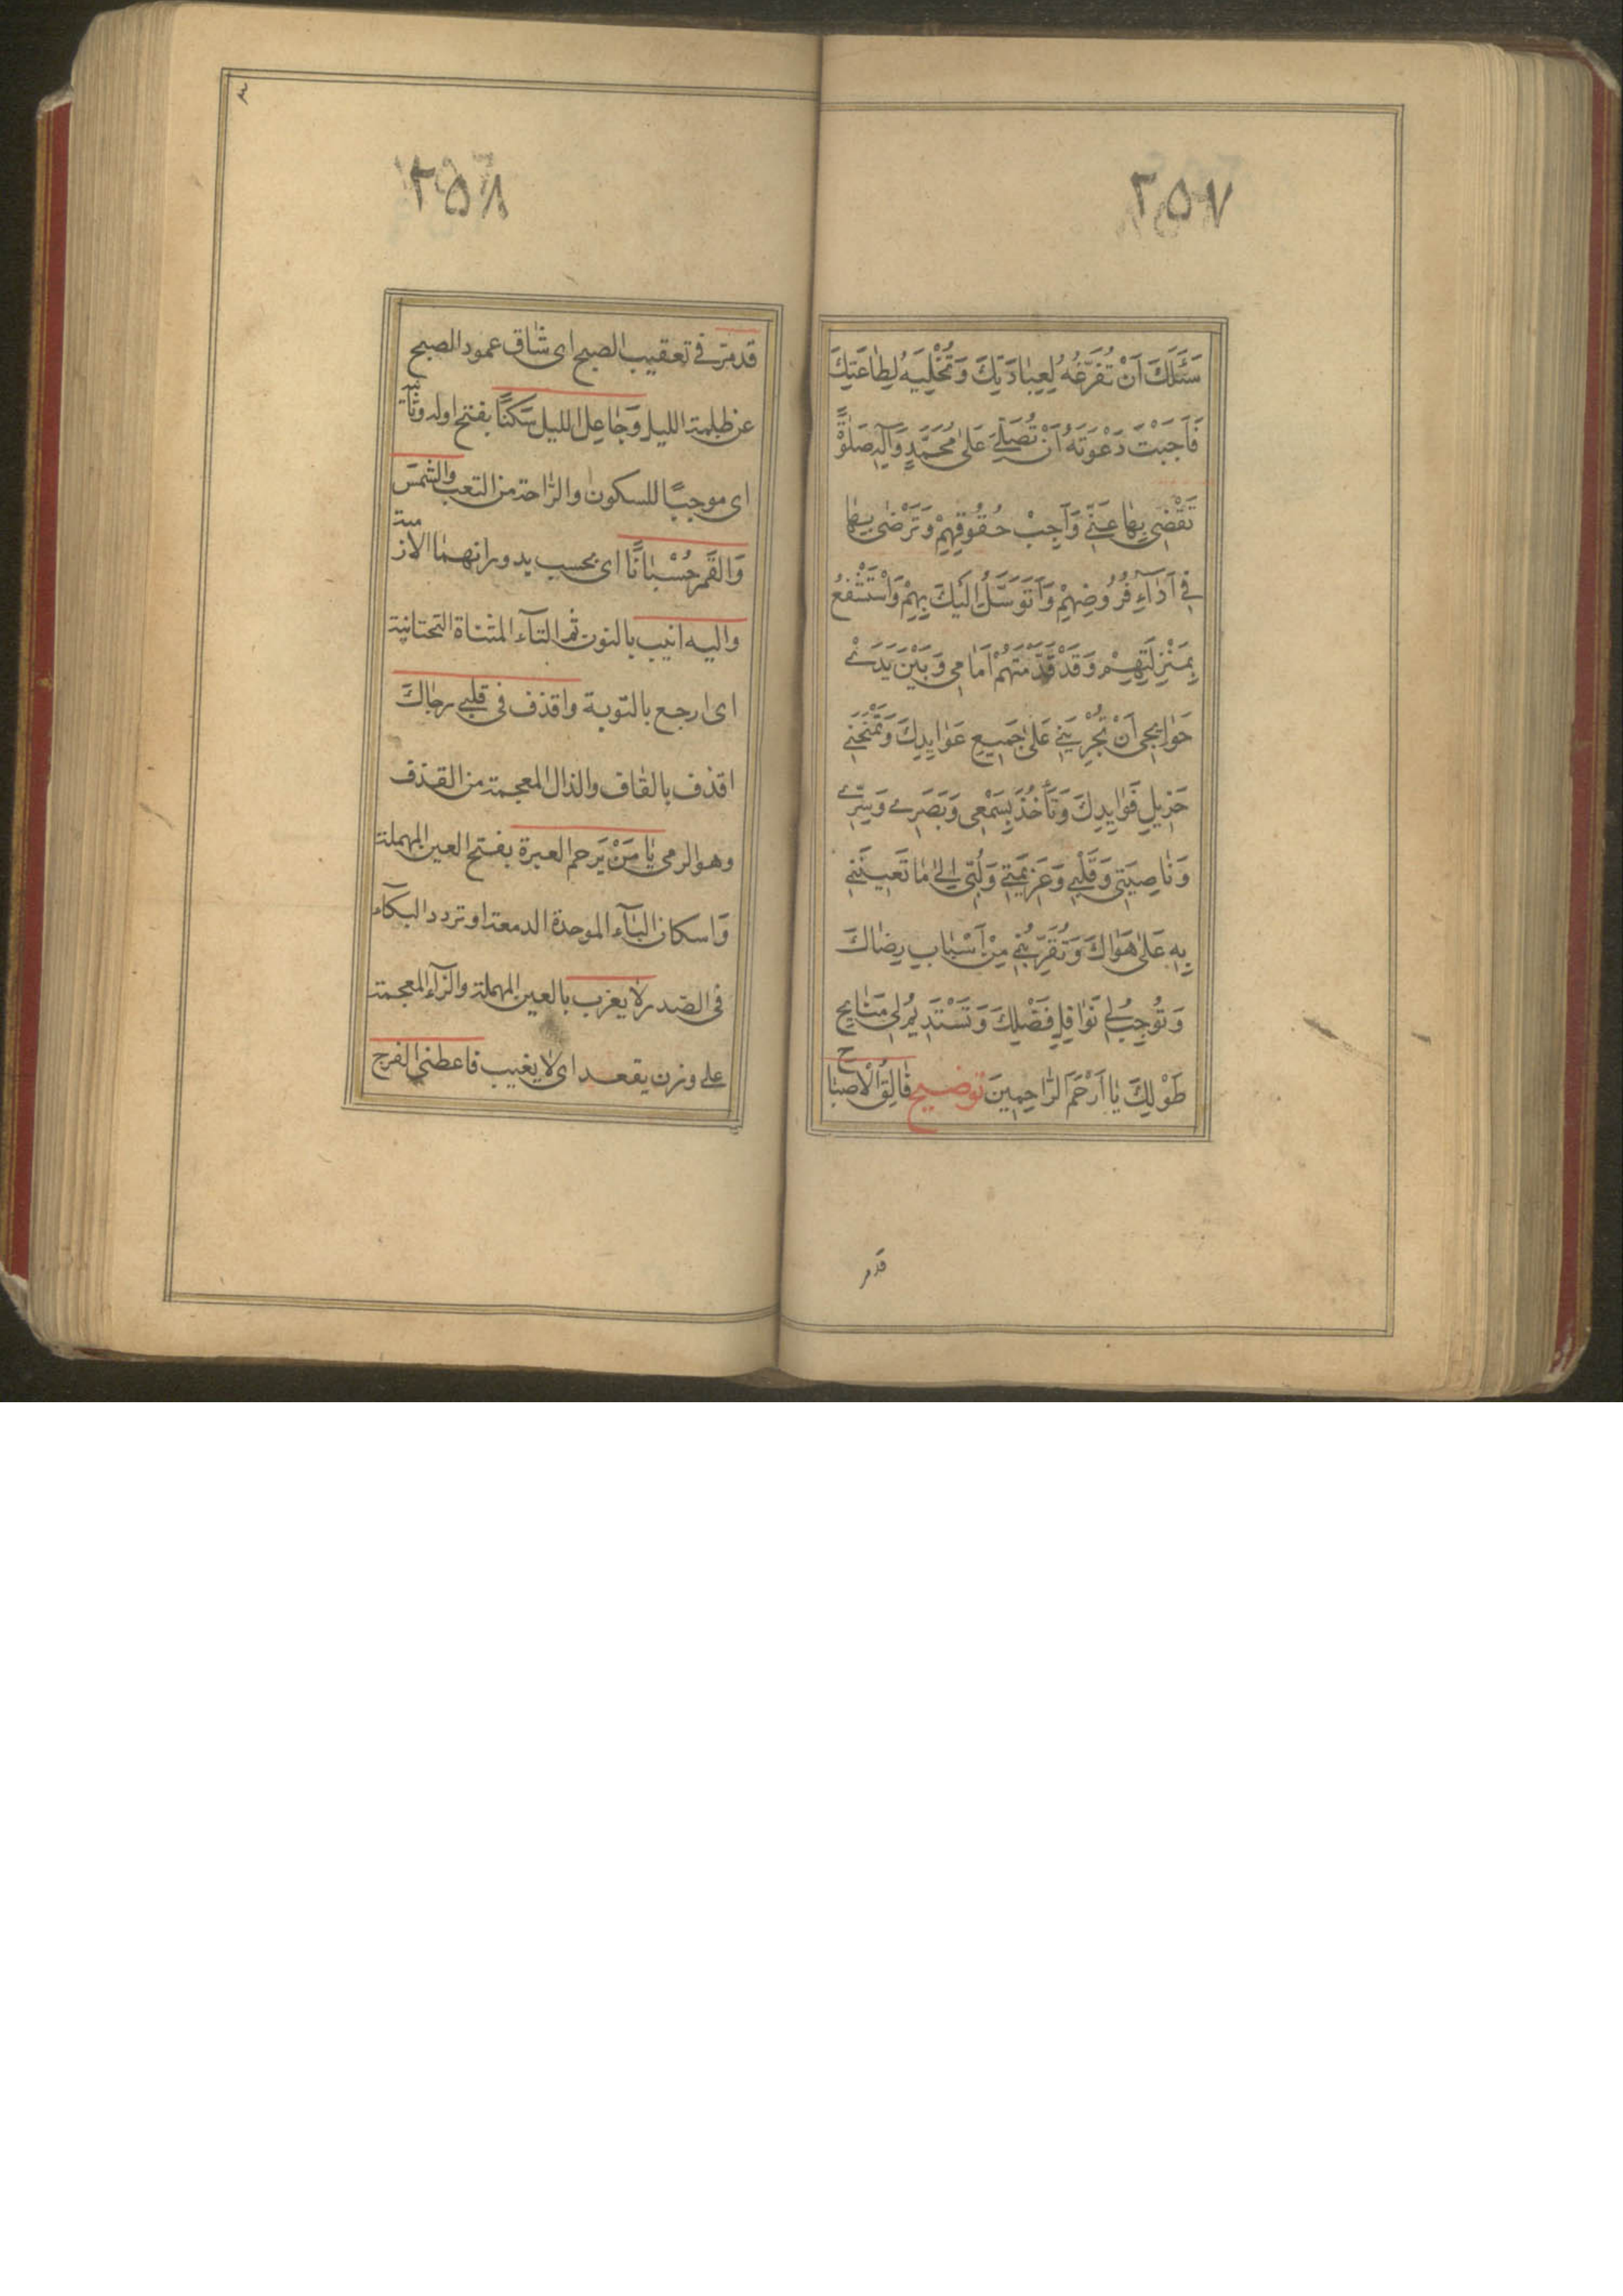 ٢٥٧
سَئَلَكَ اَنْ تُفَرِّغَهُ لِعِبَادَتِكَ وَتُخْلِيَهُ لِطَاعَتِكَ
فَاَجَبْتَ دَعْوَتَهُ اَنْ تُصَلِّىَ عَلٰى مُحَمَّدٍ وَآلِهِ صَلٰوةً
تَقْضِى بِهَا عَنِّى وَاجِبْ حُقُوقِهِمْ وَتَرْضٰى بِهَا
فِى اَدَآءِ فُرُوضِهِمْ وَاَتَوَسَّلُ اِلَيْكَ بِهِمْ وَاَسْتَشْفِعُ
بِمَنْزِلَتِهِمْ وَقَدْ قَدَّمْتُهُمْ اَمَامِى وَبَيْنَ يَدَىْ
حَوَايِجِى اَنْ تُجْرِيَنِى عَلٰى جَمِيعِ عَوَايِدِكَ وَتَمْنَحَنِى
جَزِيلِ فَوَايِدِكَ وَتَأْخُذَ بِسَمْعِى وَبَصَرِى وَسِرِّى
وَنَاصِيَتِى وَقَلْبِى وَعَزِيمَتِى وَلُبِّى اِلٰى مَا تُعِينُنِى
بِهِ عَلٰى هَوَاكَ وَتُقَرِّبُنِى مِنْ اَسْبَابِ رِضَاكَ
وَتُوجِبُ لِى نَوَافِلِ فَضْلِكَ وَتَسْتَدِيمُ لِى مَنَايِحِ
طَوْلِكَ يَا اَرْحَمَ الرَّاحِمِينَ توضيح فَالِقُ الْاَصْبَاح
قدمر
٢٥٨
قدمرّ فى تعقيب الصبح اى شاق عمود الصبح
عن ظلمة الليل وَجَاعِلِ الليل سَكَنًا بفتح اوله وثانيه
اى موجبًا للسكون والرّاحة من التعب والشمسَ
وَالقَمَرَ حُسْبَانًا اى بحسب بدورانهما الازمنة
واليه انيب بالنون ثم التآء المثناة التحتانية
اى ارجع بالتوبة واقذف فى قلبى رجاك
اقذف بالقاف والذال المعجمة من القذف
وهو الرمى يَا مَنْ يَرحم العبرة بفتح العين المهملة
وَاسكان البآء الموحدة الدمعة او تردد البكآء
فى الصّدر لا يعزب بالعين المهملة والزآء المعجمة
على وزن يقعد اى لا يغيب فاعطنى الفرج